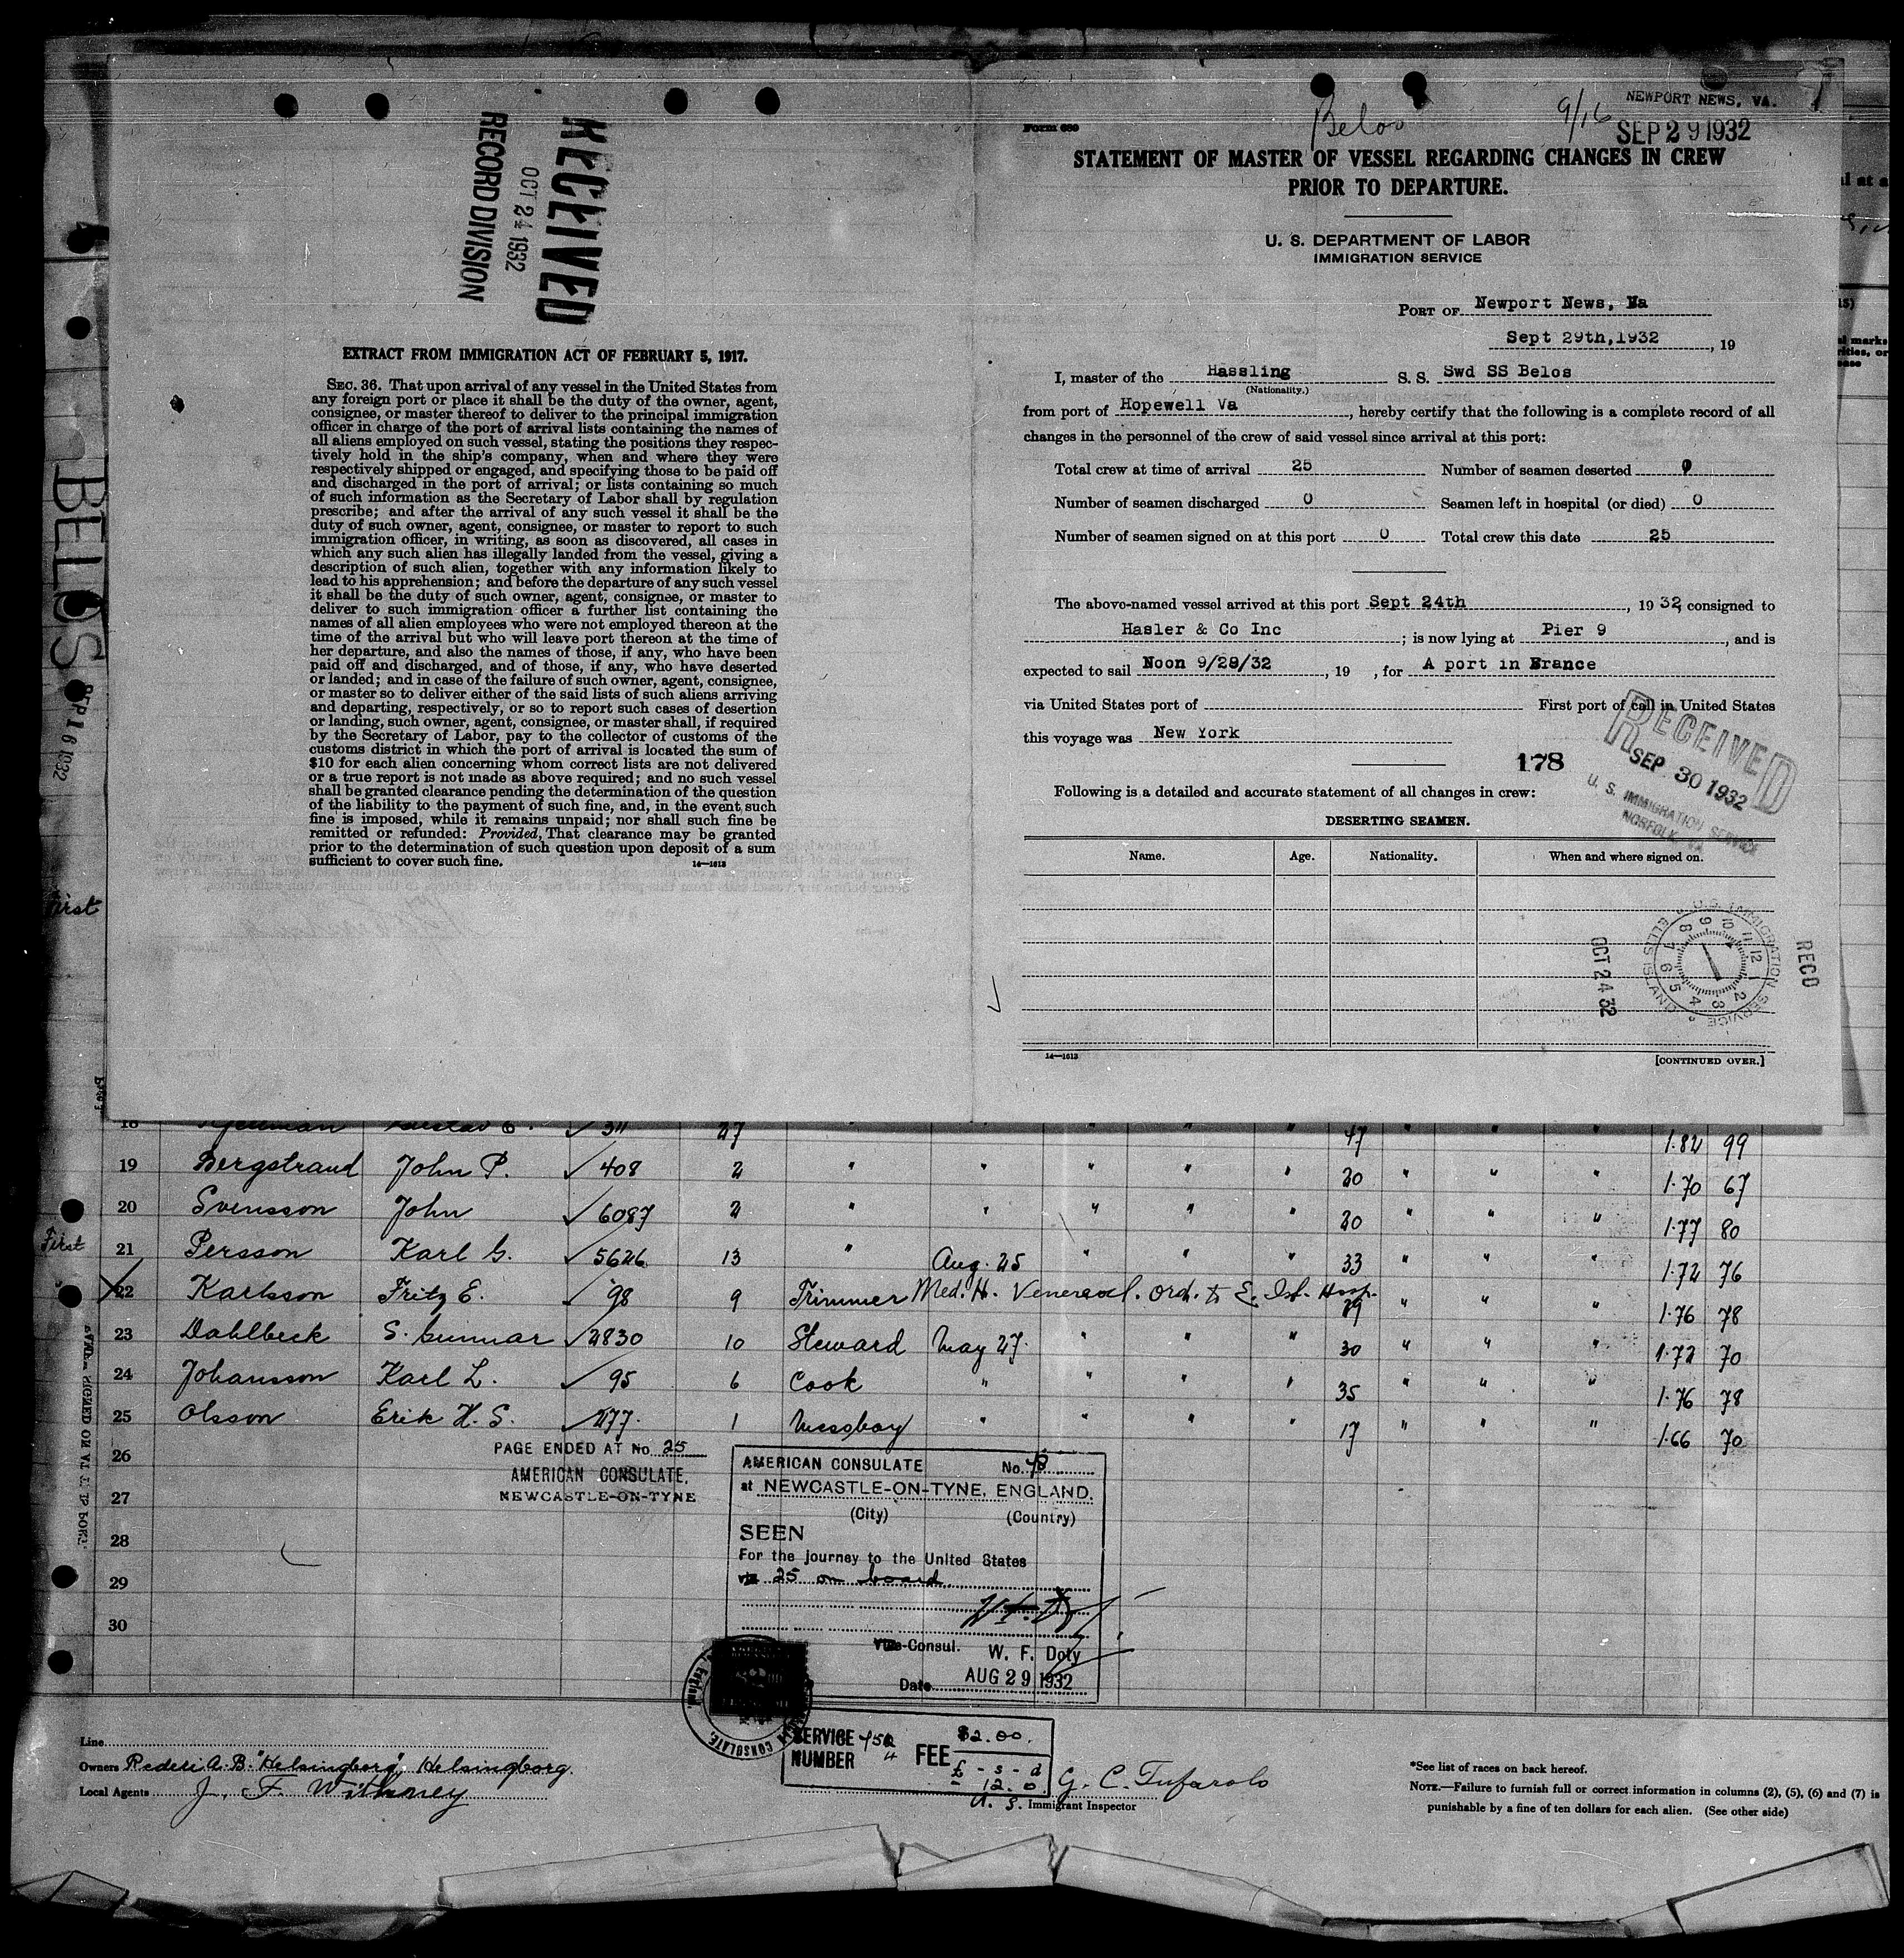 RECEIVED
OCT 24 1932
RECORD DIVISION
EXTRACT FROM IMMIGRATION ACT OF FEBRUARY 5, 1917.
SEC. 36. That upon arrival of any vessel in the United States from
any foreign port or place it shall be the duty of the owner, agent,
consignee, or master thereof to deliver to the principal immigration
officer in charge of the port of arrival lists containing the names of
all aliens employed on such vessel, stating the positions they respec-
tively hold in the ship's company, when and where they were
respectively shipped or engaged, and specifying those to be paid off
and discharged in the port of arrival; or lists containing so much
of such information as the Secretary of Labor shall by regulation
prescribe; and after the arrival of any such vessel it shall be the
duty of such owner, agent, consignee, or master to report to such
immigration officer, in writing, as soon as discovered, all cases in
which any such alien has illegally landed from the vessel, giving a
description of such alien, together with any information likely to
lead to his apprehension; and before the departure of any such vessel
it shall be the duty of such owner, agent, consignee, or master to
deliver to such immigration officer a further list containing the
names of all alien employees who were not employed thereon at the
time of the arrival but who will leave port thereon at the time of
her departure, and also the names of those, if any, who have been
paid off and discharged, and of those, if any, who have deserted
or landed; and in case of the failure of such owner, agent, consignee,
or master so to deliver either of the said lists of such aliens arriving
and departing, respectively, or so to report such cases of desertion
or landing, such owner, agent, consignee, or master shall, if required
by the Secretary of Labor, pay to the collector of customs of the
customs district in which the port of arrival is located the sum of
$10 for each alien concerning whom correct lists are not delivered
or a true report is not made as above required; and no such vessel
shall be granted clearance pending the determination of the question
of the liability to the payment of such fine, and, in the event such
fine is imposed, while it remains unpaid; nor shall such fine be
remitted or refunded: Provided, That clearance may be granted
prior to the determination of such question upon deposit of a sum
sufficient to cover such fine. 14—1613
BELOS
SEP 16 1932
First
Form 689
Belos
9/16
NEWPORT NEWS, VA.
SEP 29 1932
STATEMENT OF MASTER OF VESSEL REGARDING CHANGES IN CREW
PRIOR TO DEPARTURE.
U. S. DEPARTMENT OF LABOR
IMMIGRATION SERVICE
PORT OF Newport News, Va
Sept 29th,1932, 19
I, master of the Hassling S. S. Swd SS Belos
(Nationality.)
from port of Hopewell Va, hereby certify that the following is a complete record of all
changes in the personnel of the crew of said vessel since arrival at this port:
Total crew at time of arrival 25 Number of seamen deserted 0
Number of seamen discharged 0 Seamen left in hospital (or died) 0
Number of seamen signed on at this port 0 Total crew this date 25
The above-named vessel arrived at this port Sept 24th, 1932, consigned to
Hasler & Co Inc; is now lying at Pier 9, and is
expected to sail Noon 9/29/32, 19 , for A port in France
via United States port of First port of call in United States
this voyage was New York
178
RECEIVED
SEP 30 1932
U. S. IMMIGRATION SERVICE
NORFOLK, VA
Following is a detailed and accurate statement of all changes in crew:
DESERTING SEAMEN.
Name. Age. Nationality. When and where signed on.
U.S. IMMIGRATION SERVICE
ELLIS ISLAND
OCT 24 32
RECD
14—1613 [CONTINUED OVER.]
18 Gustav 311 27 " " " " " 47 " " " 1.82 99
19 Bergstrand John P. 408 2 " " " " " 20 " " " 1.70 67
20 Svensson John 6087 2 " " " " " 20 " " " 1.77 80
First
21 Persson Karl G. 5626 13 " Aug. 25 " " " 33 " " " 1.72 76
22 Karlsson Fritz E. 98 9 Trimmer Med. H. Venereal. Ord. to E. Isl. Hosp. 29 " " " 1.76 78
23 Dahlbeck S. Gunnar 2830 10 Steward May 27. " " " 30 " " " 1.72 70
24 Johansson Karl L. 95 6 Cook " " " " 35 " " " 1.76 78
25 Olsson Erik H. S. 277. 1 Messboy " " " " 17 " " " 1.66 70
26
27
28
29
30
PAGE ENDED AT No. 25
AMERICAN CONSULATE,
NEWCASTLE-ON-TYNE
AMERICAN CONSULATE No.
at NEWCASTLE-ON-TYNE, ENGLAND.
(City) (Country)
SEEN
For the journey to the United States
25 on board
Vice-Consul. W. F. Doty
Date AUG 29 1932
SERVICE NUMBER 452
FEE $2.00.
£ - s - d
- 12. 0.
Line
Owners Rederi A. B. "Helsingborg", Helsingborg.
Local Agents J. F. Whitney
G. C. Tufarolo
U. S. Immigrant Inspector
*See list of races on back hereof.
NOTE.—Failure to furnish full or correct information in columns (2), (5), (6) and (7) is
punishable by a fine of ten dollars for each alien. (See other side)